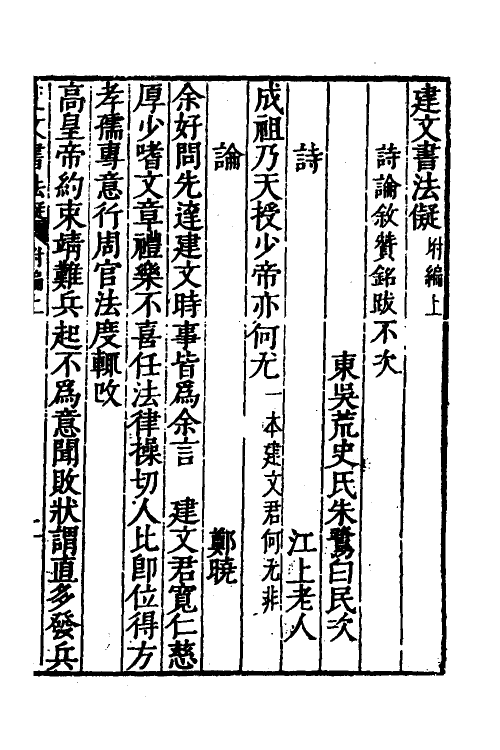 建文書法儗附編上
詩論敘贊銘跋不次
東吳荒史氏朱鷺白民次
詩　江上老人
成祖乃天授少帝亦何尤一本建文君何尤非
論　鄭曉
余好問先達建文時事皆爲余言　建文君寬仁慈
厚少嗜文章禮樂不喜任法律操切人比卽位得方
孝孺專意行周官法度輒改
高皇帝約束靖難兵起不爲意聞敗狀謂直多發兵
文書法儗　附編上